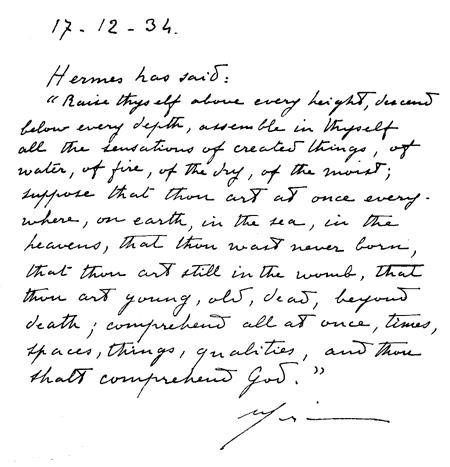 17-12-34.
Hermes has said:
"Raise thyself above every height, descend
below every depth, assemble in thyself
all the sensations of created things, of
water, of fire, of the dry, of the moist;
suppose that thou art at once every-
where, on earth, in the sea, in the
heavens, that thou wast never born,
that thou art still in the womb, that
thou art young, old, dead, beyond
death; comprehend all at once, times,
spaces, things, qualities, and thou
shalt comprehend God."